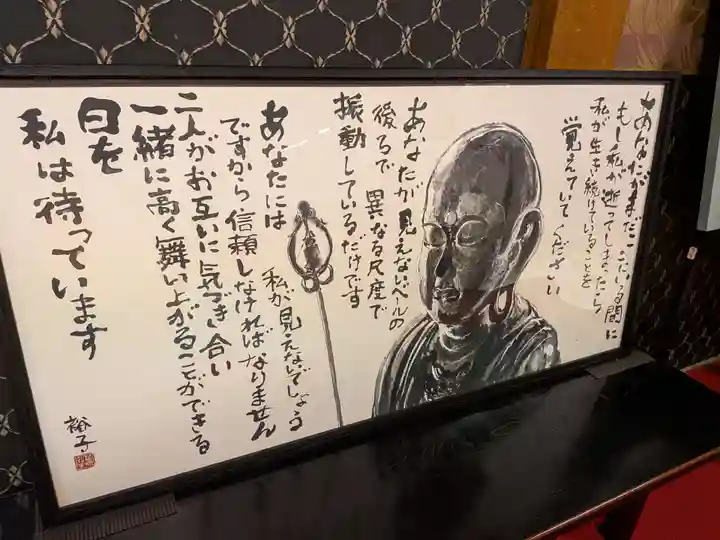 あなたがまだここにいる間に
もし私が逝ってしまったら
私が生き続けていることを
覚えていてください
あなたが見えないベールの
後ろで異なる尺度で
振動しているだけです
あなたには
私が見えないでしょう
ですから信頼しなければなりません
二人がお互いに気づき合い
一緒に高く舞い上がることができる
日を
私は待っています
裕子